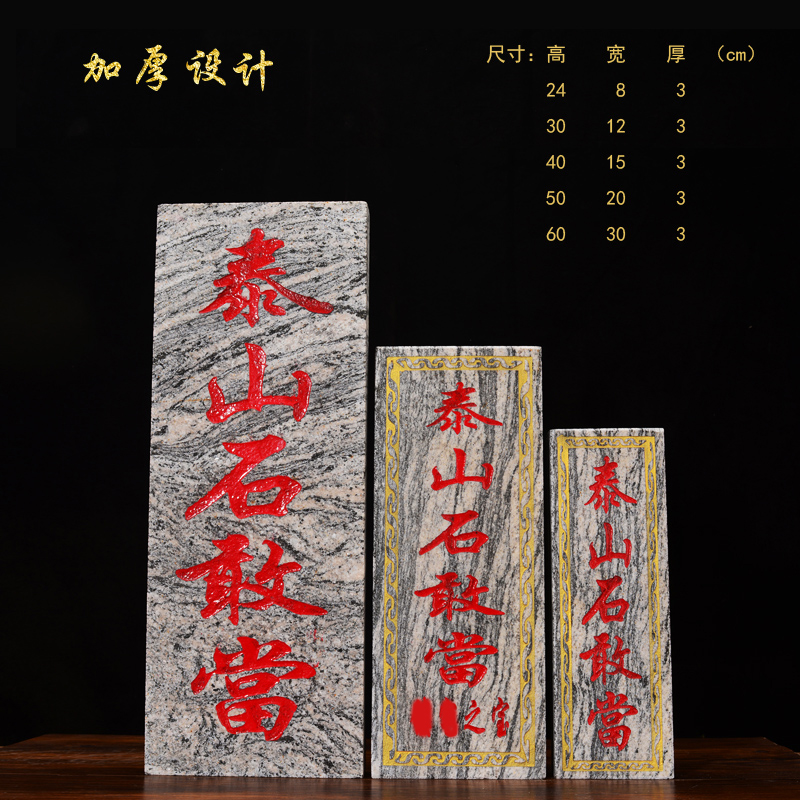 加厚设计
尺寸：高 宽 厚 （cm）
24 8 3
30 12 3
40 15 3
50 20 3
60 30 3
泰山石敢當
泰山石敢當
之宝
泰山石敢當